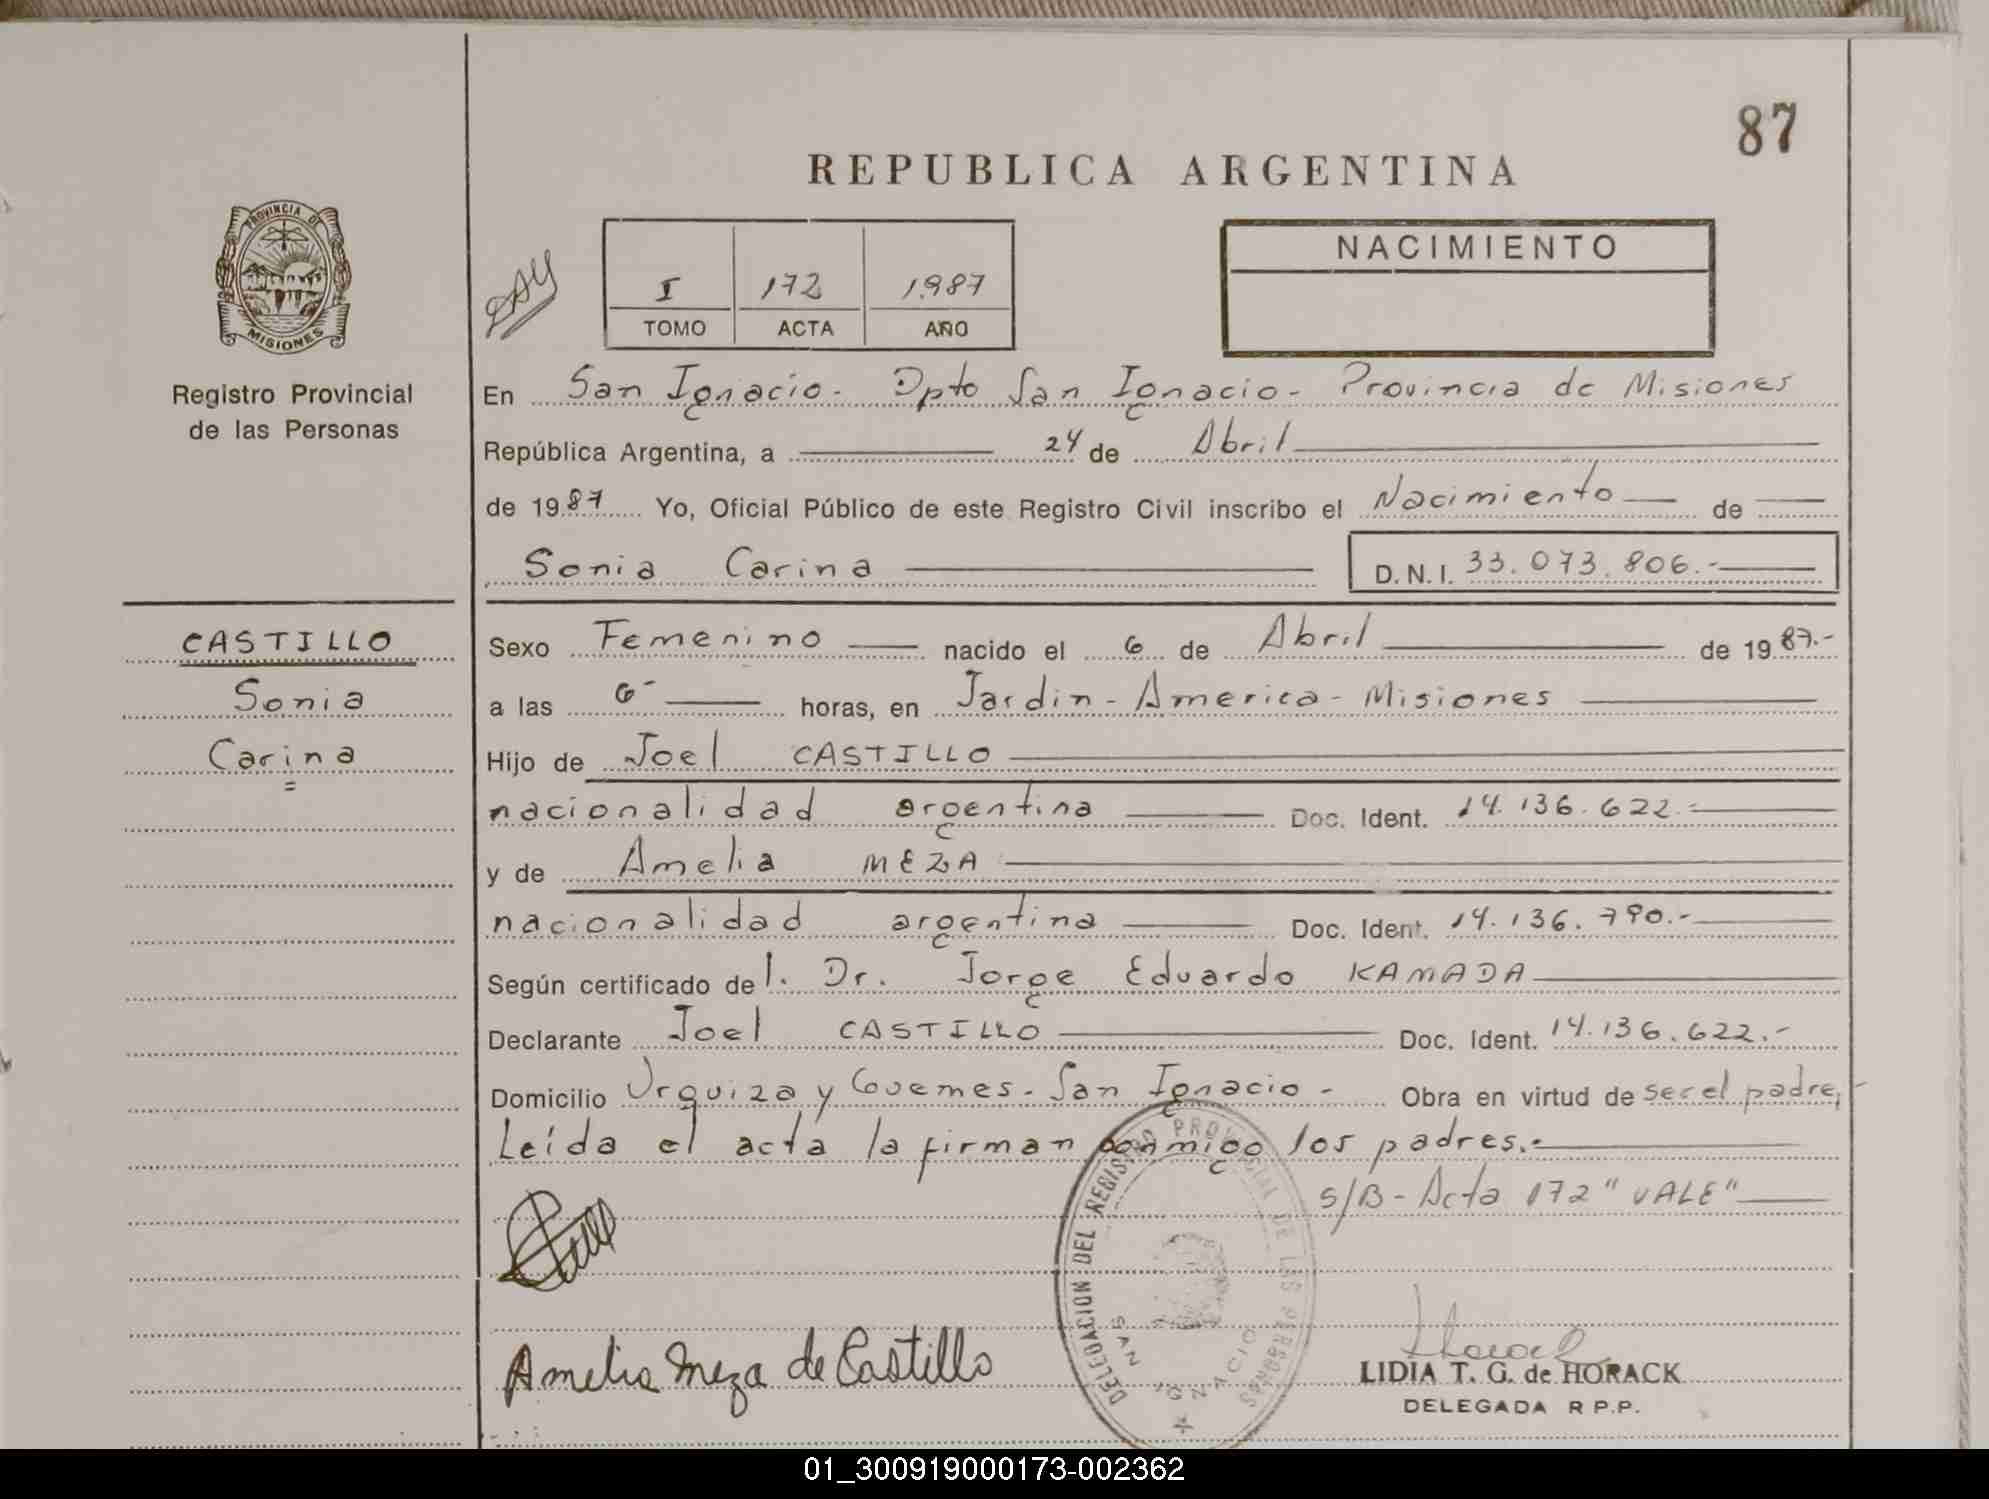 87
REPUBLICA ARGENTINA
PROVINCIA DE
MISIONES
Registro Provincial
de las Personas
I 172 1987
TOMO ACTA AÑO
NACIMIENTO
En San Ignacio - Dpto San Ignacio - Provincia de Misiones
República Argentina, a 24 de Abril
de 1987 Yo, Oficial Público de este Registro Civil inscribo el Nacimiento de
Sonia Carina D.N.I. 33.073.806.-
CASTILLO
Sonia
Carina
Sexo Femenino nacido el 6 de Abril de 1987.-
a las 6- horas, en Jardin - America - Misiones
Hijo de Joel CASTILLO
nacionalidad argentina Doc. Ident. 14.136.622.-
y de Amelia MEZA
nacionalidad argentina Doc. Ident. 14.136.790.-
Según certificado de l. Dr. Jorge Eduardo KAMADA
Declarante Joel CASTILLO Doc. Ident. 14.136.622.-
Domicilio Urquiza y Guemes - San Ignacio - Obra en virtud de ser el padre,-
Leída el acta la firman conmigo los padres.-
S/B - Acta 172 "VALE"
DELEGACION DEL REGISTRO PROVINCIAL DE LAS PERSONAS
SAN IGNACIO
Amelia Meza de Castillo
LIDIA T. G. de HORACK
DELEGADA R P.P.
01_300919000173-002362